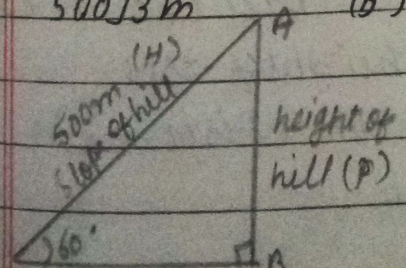 500√3 m
(B)
A
(H)
500m
slope of hill
height of
hill (P)
60°
B